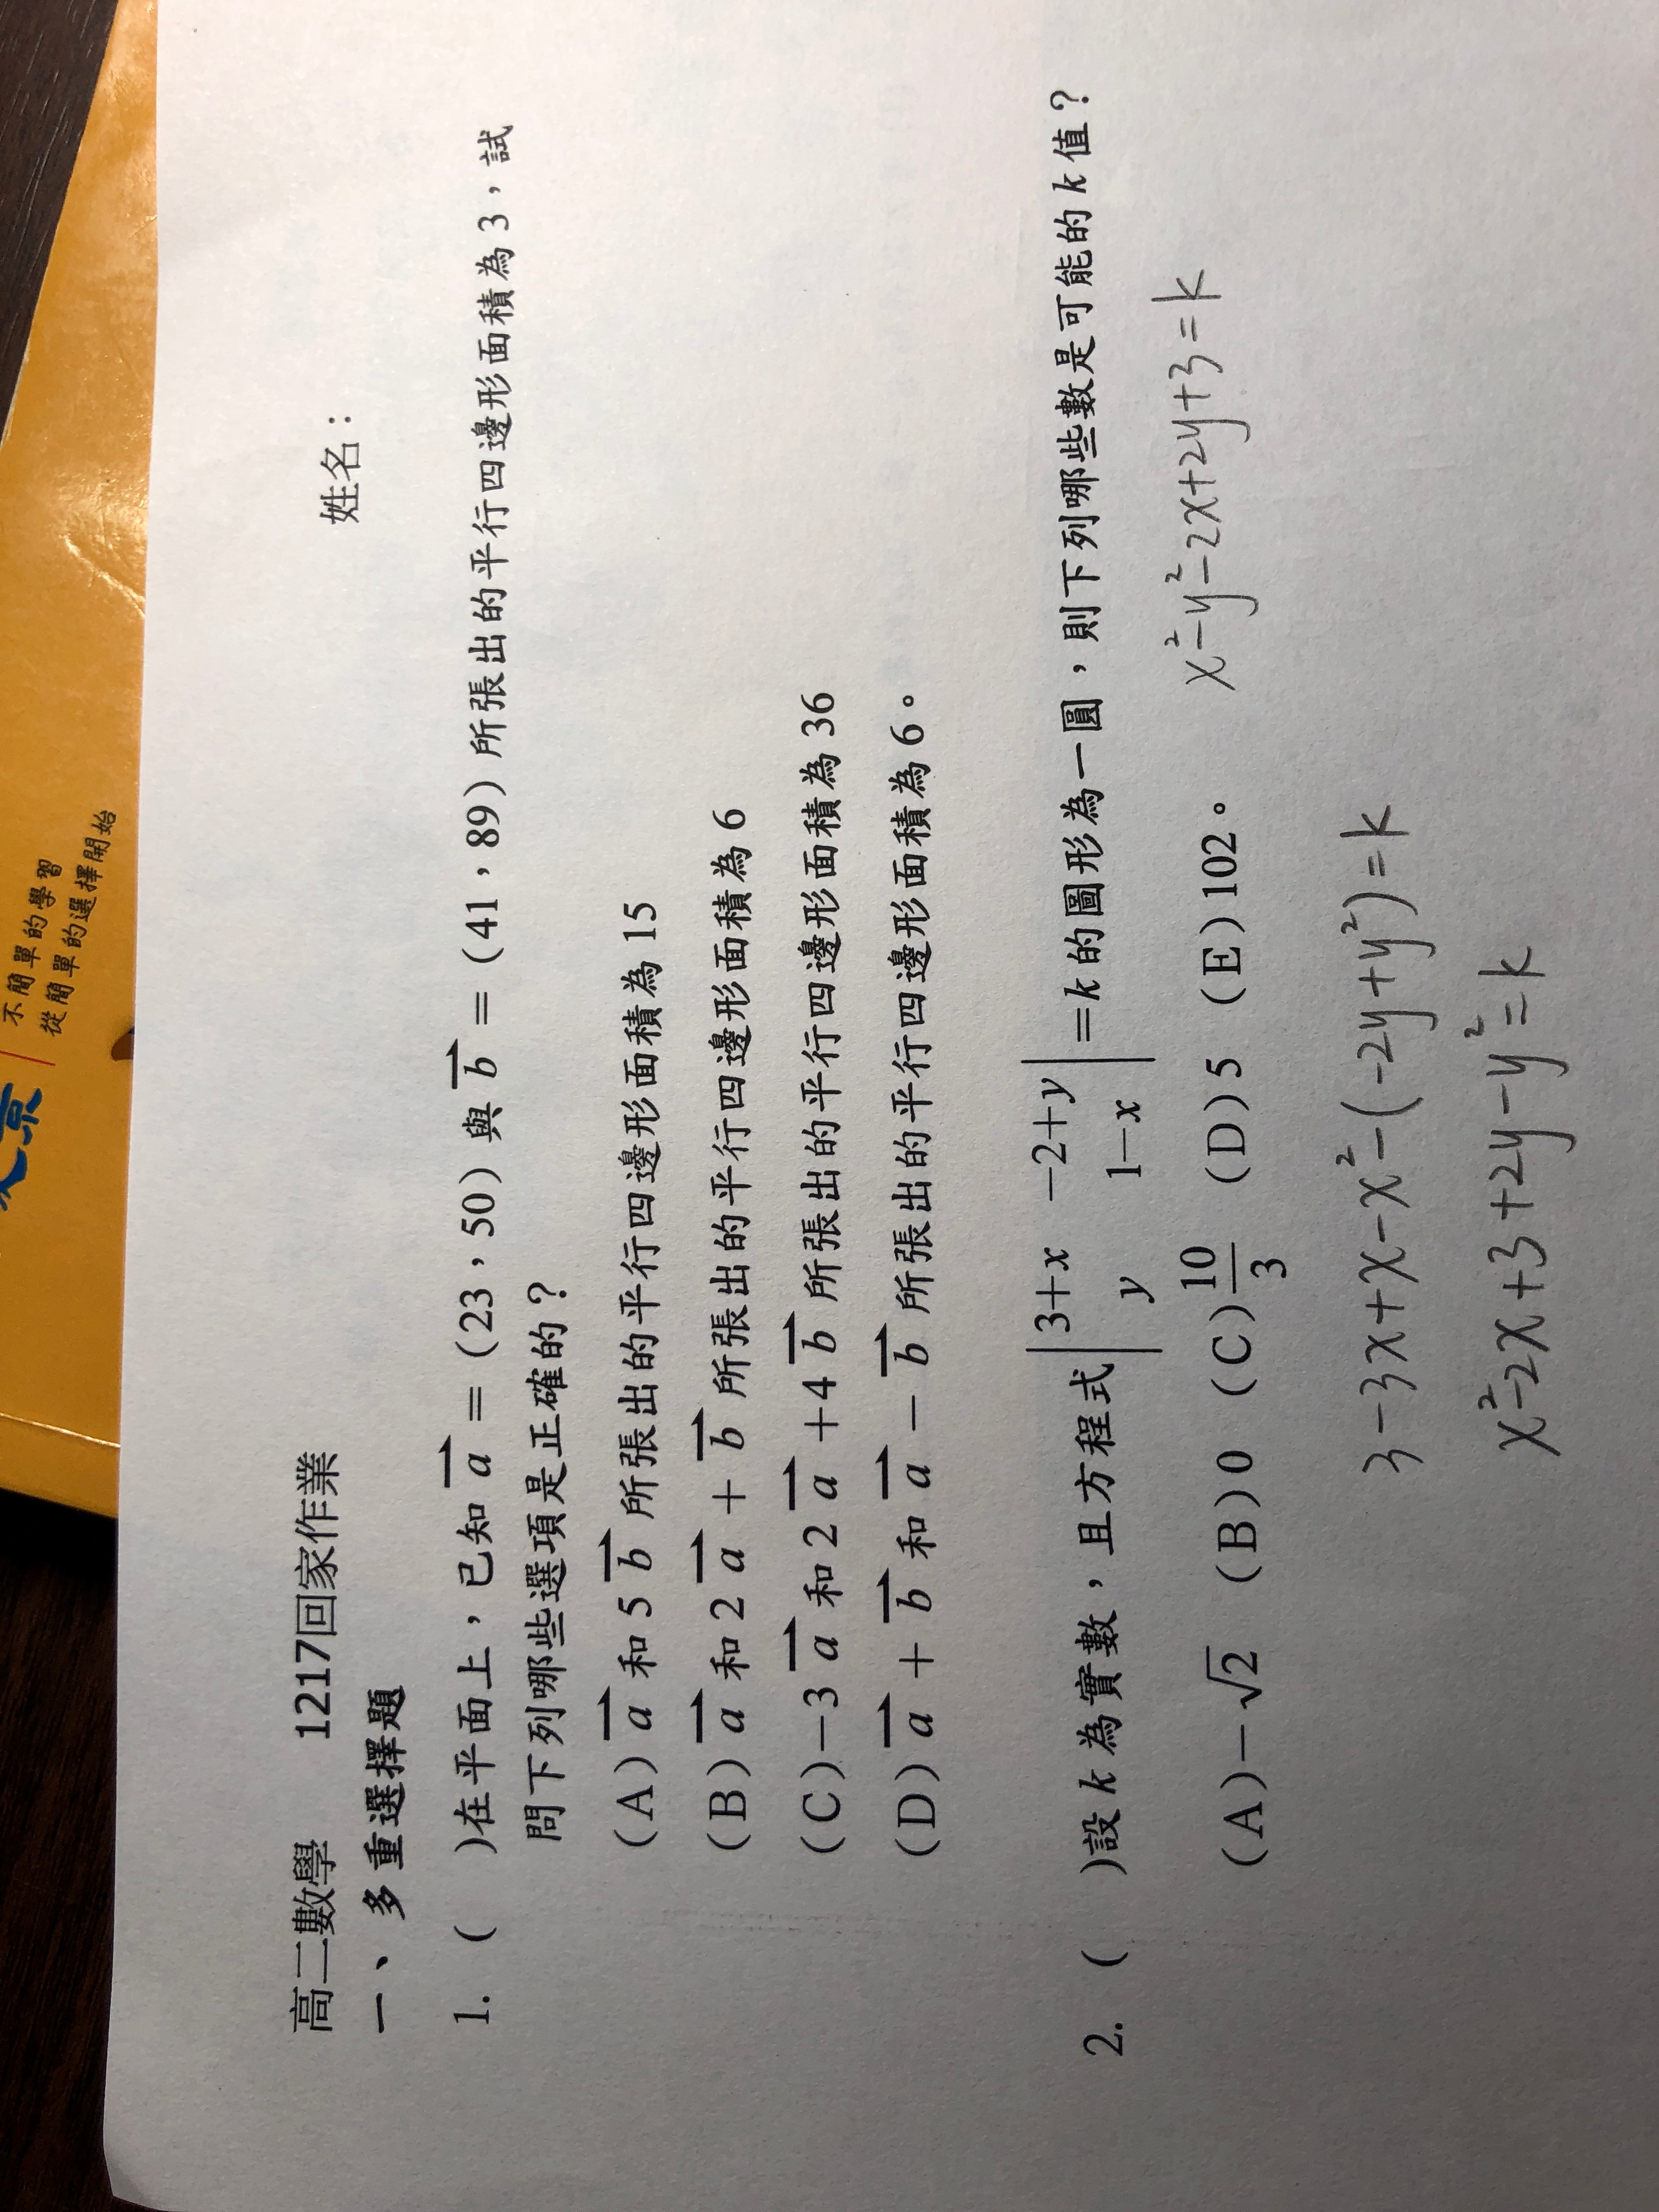 不簡單的學習
從簡單的選擇開始
高二數學 1217回家作業 姓名：
一、多重選擇題
1. ( )在平面上，已知 a⃗ = (23，50) 與 b⃗ = (41，89) 所張出的平行四邊形面積為 3，試
問下列哪些選項是正確的？
(A) a⃗ 和 5 b⃗ 所張出的平行四邊形面積為 15
(B) a⃗ 和 2 a⃗ + b⃗ 所張出的平行四邊形面積為 6
(C) −3 a⃗ 和 2 a⃗ +4 b⃗ 所張出的平行四邊形面積為 36
(D) a⃗ + b⃗ 和 a⃗ − b⃗ 所張出的平行四邊形面積為 6。
2. ( )設 k 為實數，且方程式 |3+x −2+y; y 1−x| = k 的圖形為一圓，則下列哪些數是可能的 k 值？
(A) −√2 (B) 0 (C) 10/3 (D) 5 (E) 102。
x²−y²−2x+2y+3=k
3−3x+x−x²−(−2y+y²)=k
x²−2x+3+2y−y²=k